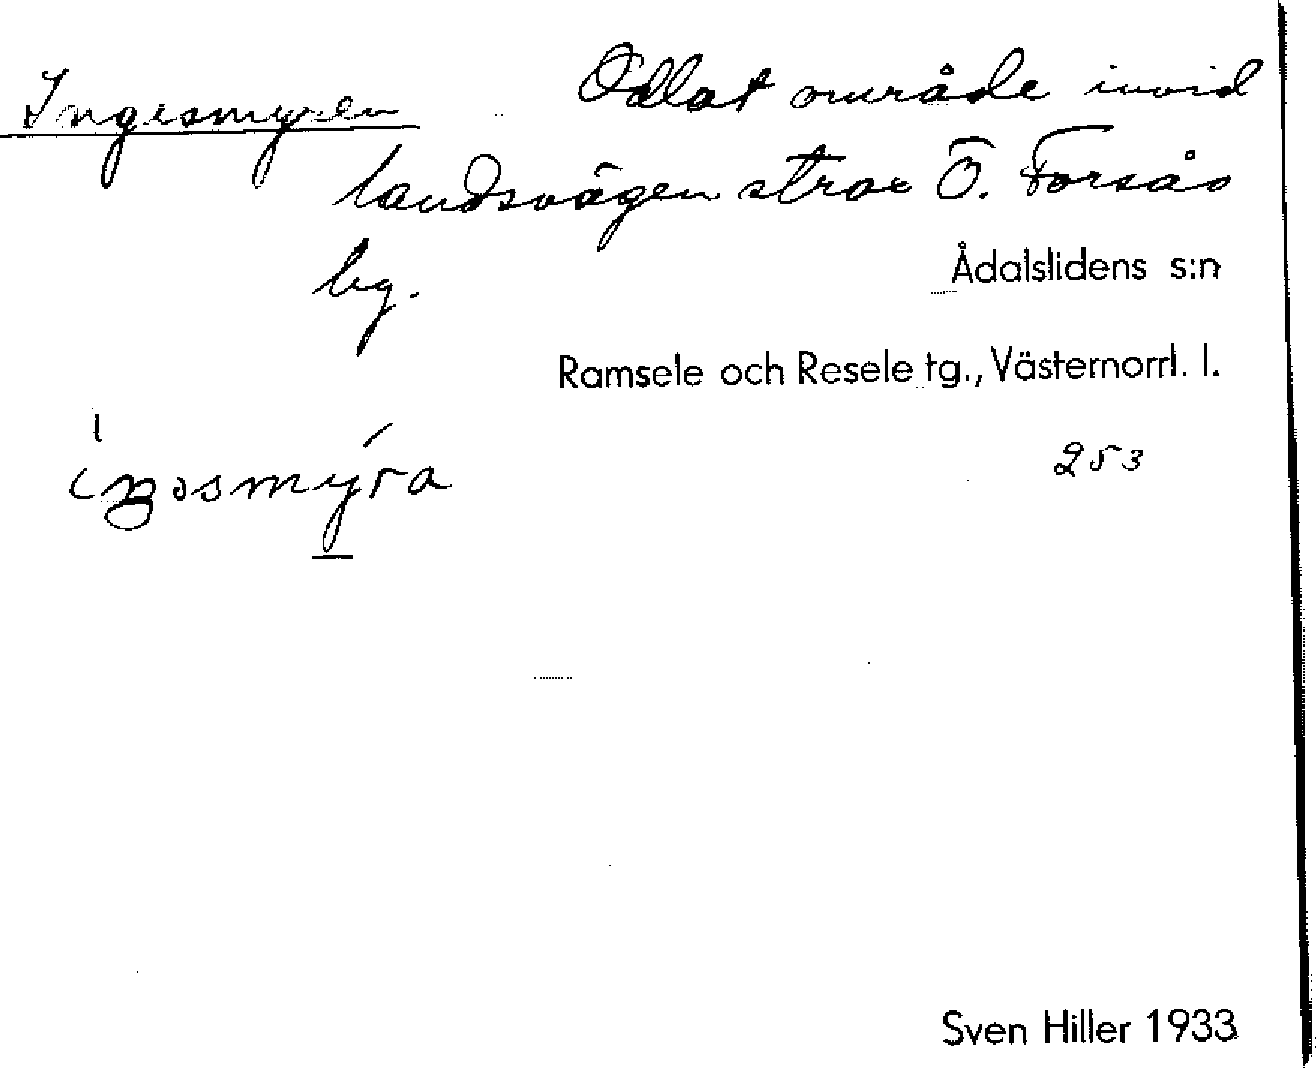 Ingesmyren Odlat område invid
landsvägen strax Ö. Forsås
by.
Ådalslidens s:n
Ramsele och Resele tg., Västernorrl. l.
253
Sven Hiller 1933